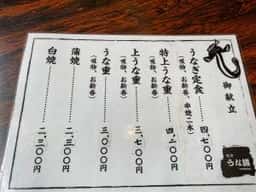 御献立
うなぎ定食……四、七〇〇円
（吸物、お新香、串焼二本）
特上うな重……四、二〇〇円
（吸物、お新香）
上うな重……三、七〇〇円
（吸物、お新香）
うな重……三、〇〇〇円
（吸物、お新香）
蒲焼……二、三〇〇円
白焼……二、三〇〇円